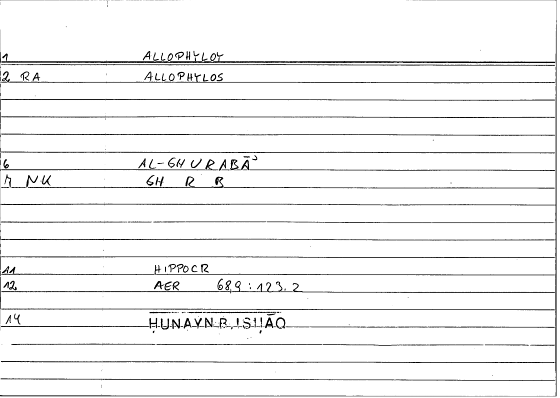 1 ALLOPHYLOY
2 RA ALLOPHYLOS
6 AL-GHURABĀʾ
7 NK GH R B
11 HIPPOCR
12 AER 68,9 : 123,2
14 ḤUNAYN B. ISḤĀQ